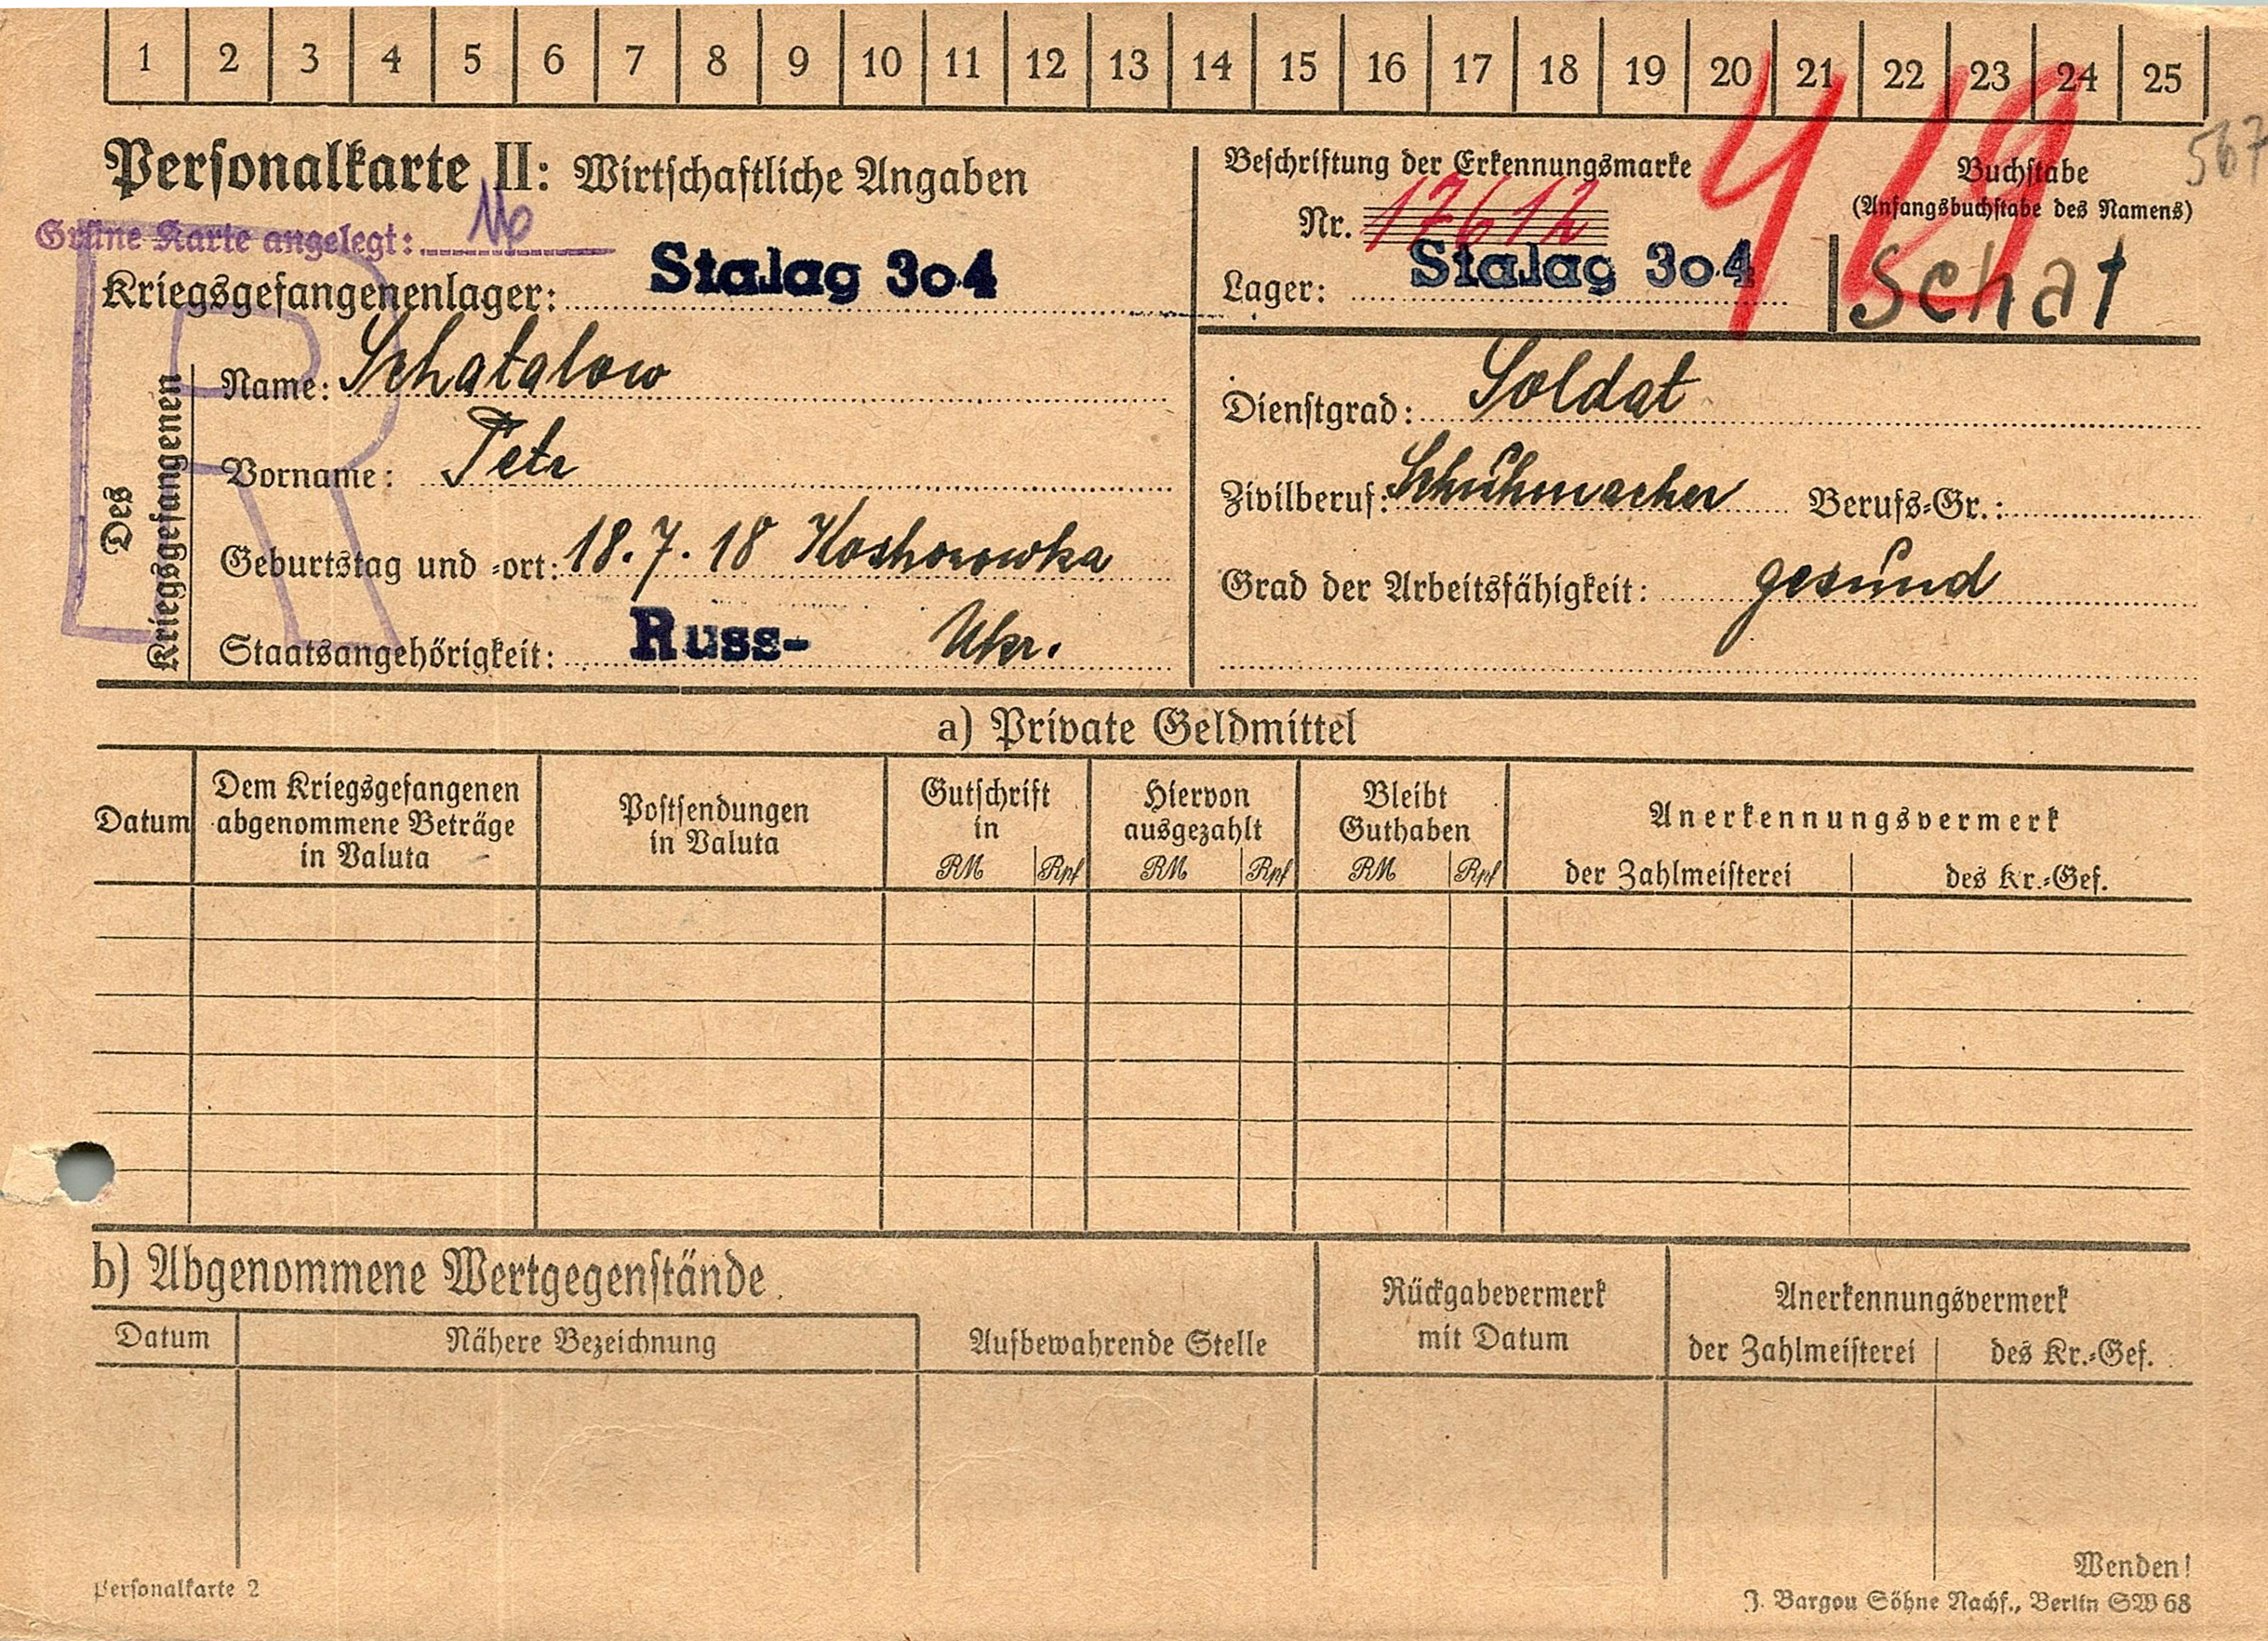 1 2 3 4 5 6 7 8 9 10 11 12 13 14 15 16 17 18 19 20 21 22 23 24 25
Personalkarte II: Wirtschaftliche Angaben
Grüne Karte angelegt:
Kriegsgefangenenlager: Stalag 304
Des Kriegsgefangenen
Name: Schatalow
Vorname: Petr
Geburtstag und -ort: 18.7.18 Koshorowka
Staatsangehörigkeit: Russ- Ukr.
R
Beschriftung der Erkennungsmarke
Nr. 17612
Lager: Stalag 304
419
567
Buchstabe
(Anfangsbuchstabe des Namens)
Schat
Dienstgrad: Soldat
Zivilberuf: Schuhmacher Berufs-Gr.:
Grad der Arbeitsfähigkeit: gesund
a) Private Geldmittel
Datum
Dem Kriegsgefangenen
abgenommene Beträge
in Valuta
Postsendungen
in Valuta
Gutschrift
in
RM Rpf
Hiervon
ausgezahlt
RM Rpf
Bleibt
Guthaben
RM Rpf
Anerkennungsvermerk
der Zahlmeisterei des Kr.-Gef.
b) Abgenommene Wertgegenstände
Datum
Nähere Bezeichnung
Aufbewahrende Stelle
Rückgabevermerk
mit Datum
Anerkennungsvermerk
der Zahlmeisterei des Kr.-Gef.
Wenden!
Personalkarte 2
J. Bargou Söhne Nachf., Berlin SW 68